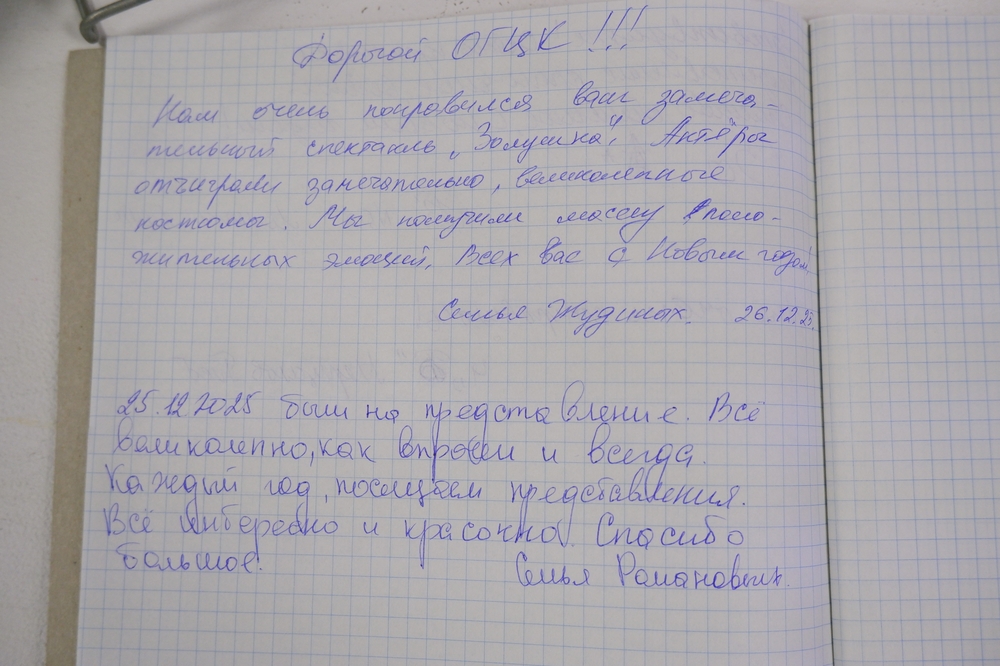 Дорогой ОГЦК !!!
Нам очень понравился ваш замеча-
тельный спектакль „Золушка". Актёры
отыграли замечательно, великолепные
костюмы. Мы получили массу поло-
жительных эмоций. Всех вас с Новым годом!
Семья Жудиных. 26.12.25.
25.12 2025 были на представление. Всё
великолепно, как впрочем и всегда.
Каждый год, посещаем представления.
Всё интересно и красочно. Спасибо
большое!
Семья